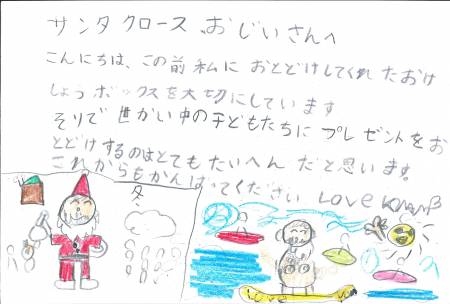 サンタクロースおじいさんへ
こんにちは、この前私におとどけしてくれたおけ
しょうボックスを大切にしています
そりで世かい中の子どもたちにプレゼントをお
とどけするのはとてもたいへんだと思います。
これからもがんばってください Love
冬
Love